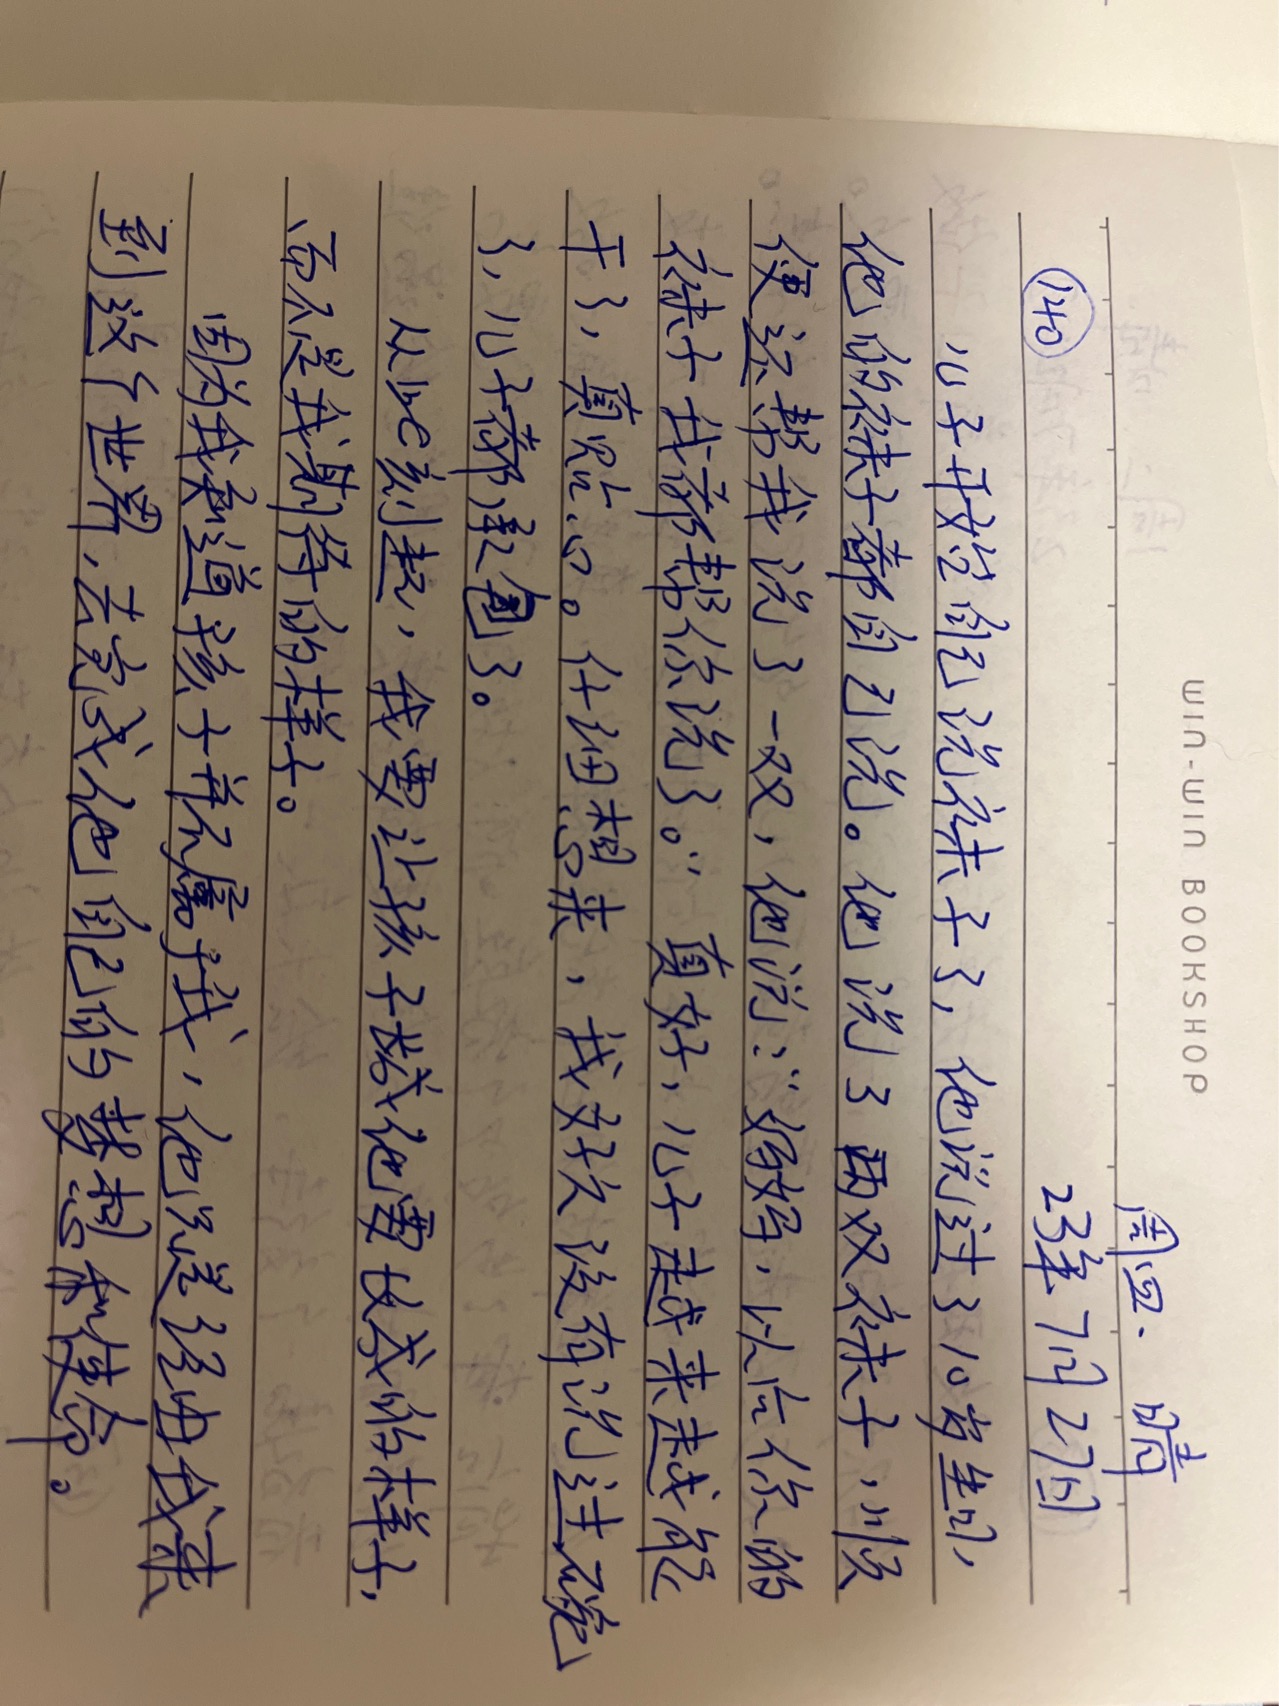 WIN-WIN BOOKSHOP
周四. 晴
140 23年7月27日
儿子开始自己洗袜子了，他说过了10岁生日，
他的袜子都自己洗。他洗了两双袜子，顺
便还帮我洗了一双，他说："妈妈，以后你的
袜子我都帮你洗了。"真好，儿子越来越能
干了，真贴心。仔细想来，我好久没有洗过碗
了，儿子都承包了。
从此刻起，我要让孩子长成他要长成的样子，
而不是我期待的样子。
因为我知道孩子并不属于我，他只是经由我来
到这个世界，去完成他自己的梦想和使命。